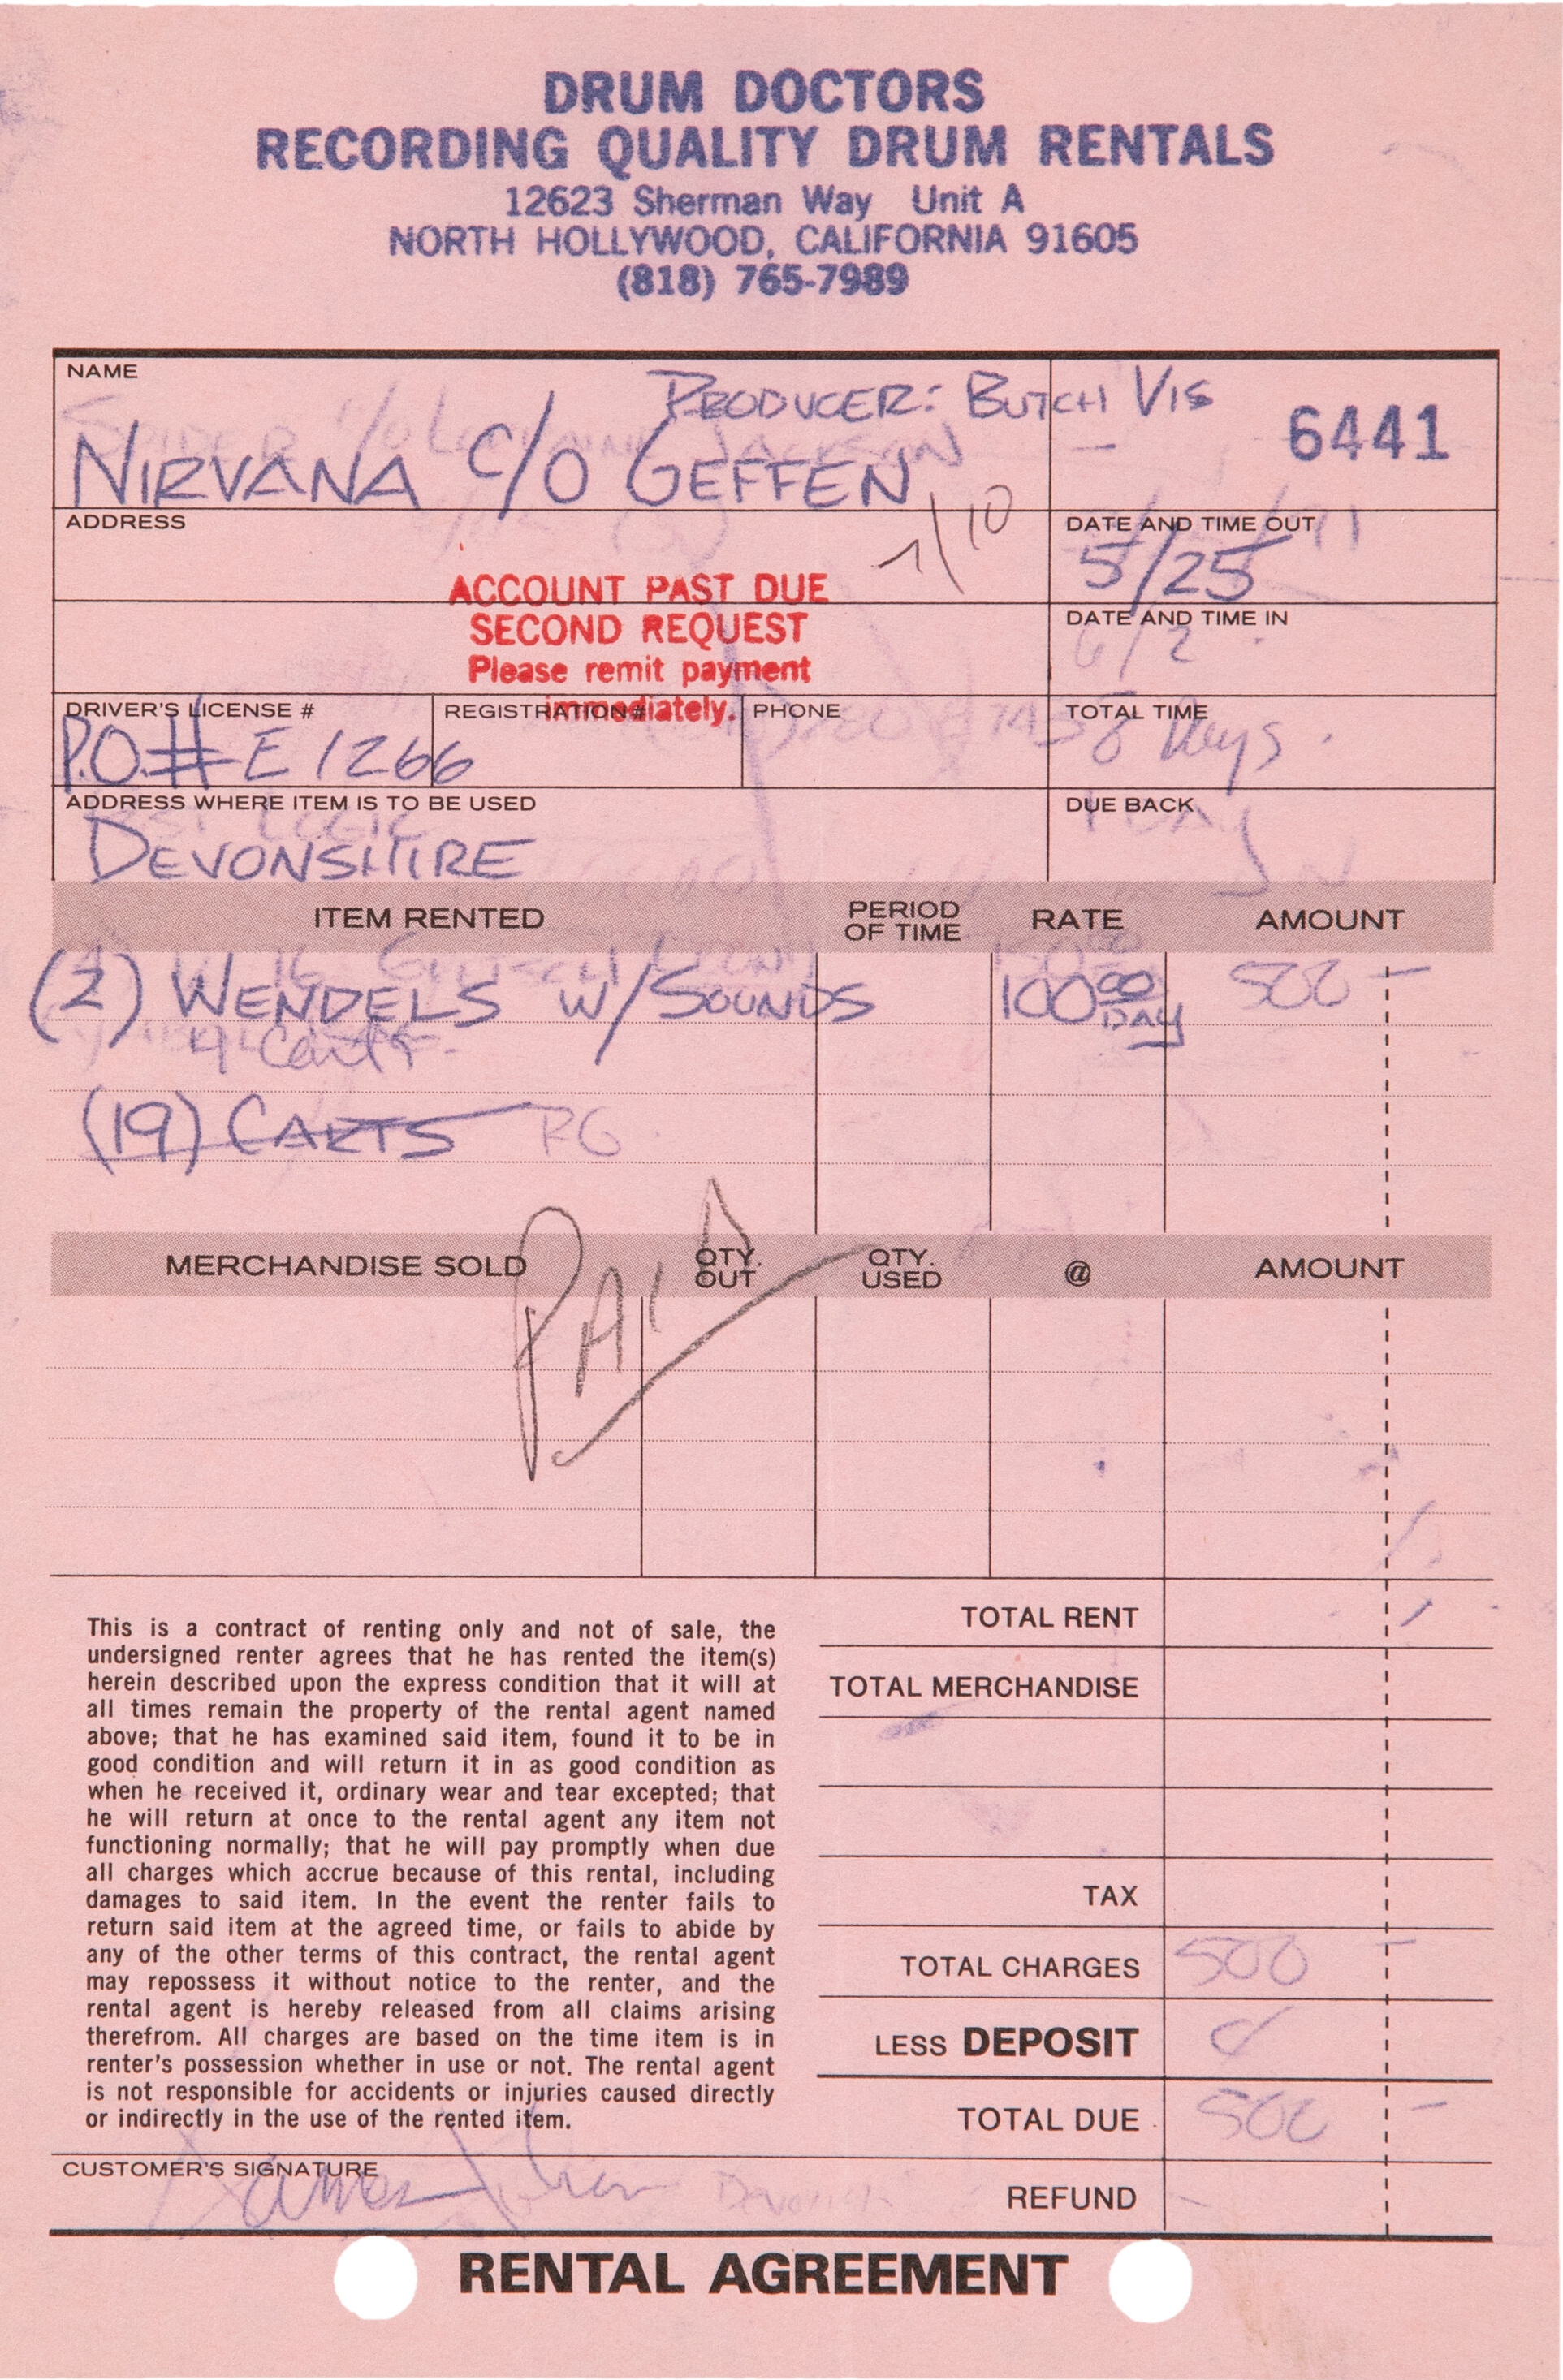 DRUM DOCTORS
RECORDING QUALITY DRUM RENTALS
12623 Sherman Way Unit A
NORTH HOLLYWOOD, CALIFORNIA 91605
(818) 765-7989
NAME
PRODUCER: BUTCH VIG
6441
NIRVANA C/O GEFFEN
ADDRESS
7/10
DATE AND TIME OUT
5/25
ACCOUNT PAST DUE
SECOND REQUEST
Please remit payment
immediately.
DATE AND TIME IN
6/2
DRIVER'S LICENSE #
REGISTRATION #
PHONE
TOTAL TIME
P.O.# E 1266
8 Days
ADDRESS WHERE ITEM IS TO BE USED
DUE BACK
DEVONSHIRE
ITEM RENTED PERIOD OF TIME RATE AMOUNT
(2) WENDELS W/SOUNDS 100 00 DAY 500 —
4 Carts
(19) CARTS
MERCHANDISE SOLD QTY. OUT QTY. USED @ AMOUNT
PAID
This is a contract of renting only and not of sale, the
undersigned renter agrees that he has rented the item(s)
herein described upon the express condition that it will at
all times remain the property of the rental agent named
above; that he has examined said item, found it to be in
good condition and will return it in as good condition as
when he received it, ordinary wear and tear excepted; that
he will return at once to the rental agent any item not
functioning normally; that he will pay promptly when due
all charges which accrue because of this rental, including
damages to said item. In the event the renter fails to
return said item at the agreed time, or fails to abide by
any of the other terms of this contract, the rental agent
may repossess it without notice to the renter, and the
rental agent is hereby released from all claims arising
therefrom. All charges are based on the time item is in
renter's possession whether in use or not. The rental agent
is not responsible for accidents or injuries caused directly
or indirectly in the use of the rented item.
TOTAL RENT
TOTAL MERCHANDISE
TAX
TOTAL CHARGES 500 —
LESS DEPOSIT
TOTAL DUE 500 —
CUSTOMER'S SIGNATURE
REFUND
RENTAL AGREEMENT